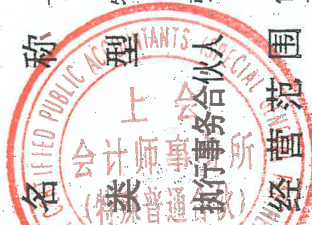 名称
类型
执行事务合伙人
经营范围
IFIED PUBLIC ACCOUNTANTS (SPECIAL
上会
会计师事务所
(特殊普通合伙)